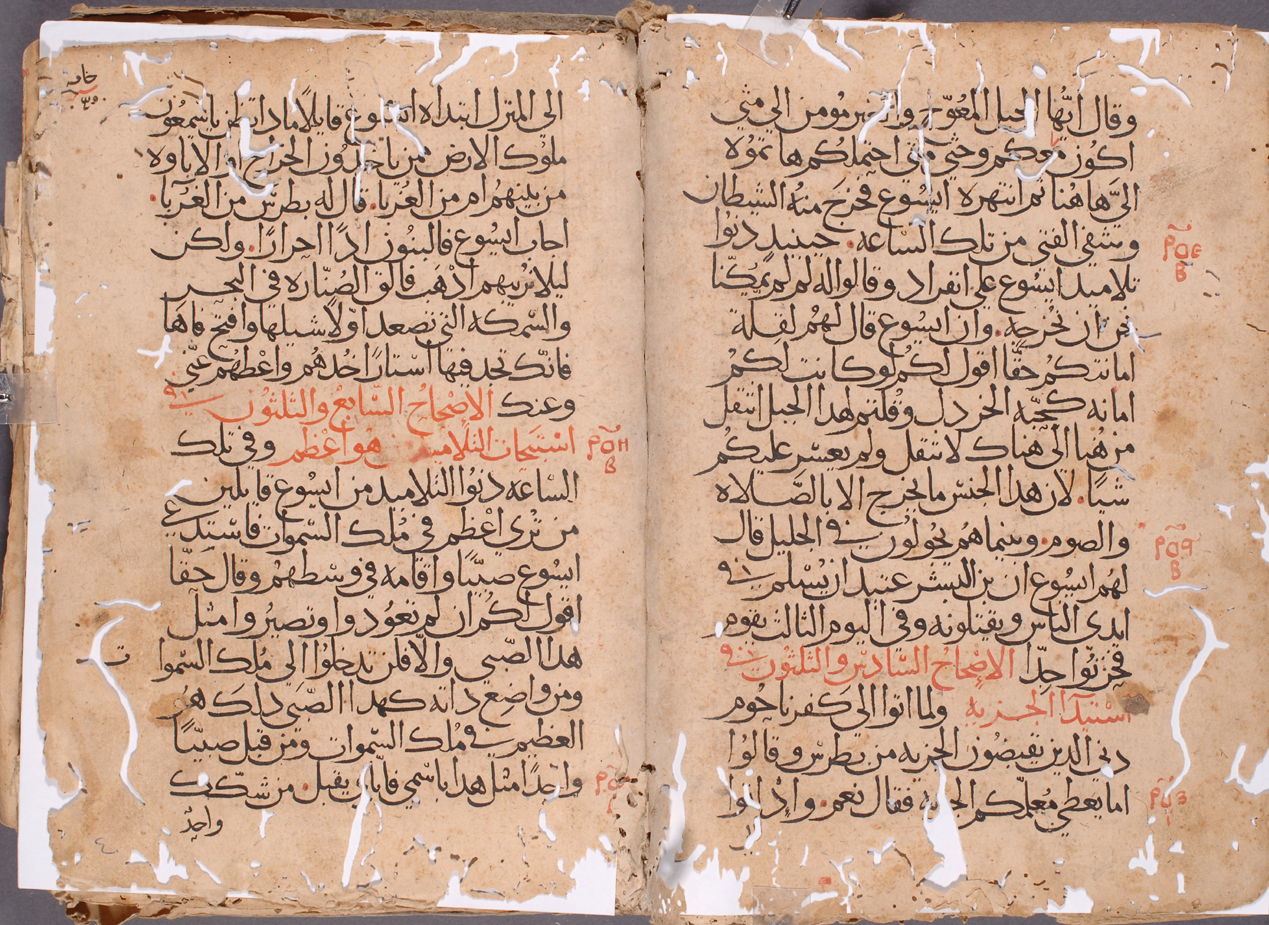 وقال ايّها الجيل المعوّج وا مومن الي متي
اكون معكم وحتي متي احتملكم هاتوه
اليّ هاهنا ثم انتهره ايسوع فخرج منه الشيطان
وشفي الفتي من تلك الساعه. حينيد دنوا
تلاميد ايسوع علي انفراد وقالوا له لم لم يمكّنا
نحن ان نخرجه. وان ايسوع قال لهم لقلة
امانتكم حقّا اقول لكم لو كانت لكم
امانه كحبّه الخردل وقلتم لهدا الجبل انتقل
من هنا الي هناك لانتقل ولم يعسر عليكم
شيًا. لان هدا الجنس ما يخرج الا بالصّلاه
والصوم. وبينما هم يجولون في الجليل قال
لهم ايسوع ان بن البشر عتيد ان يسلم في
ايدي الناس ويقتلونه وفي اليوم الثالث يقوم
فحزنوا جدّا الاصحاح السادس والثلثون في
استيدآ الجزيه ولما اتوا الي كفرناحوم
دني الدين يقبضون الجزيه من بطرس وقالوا
اما يعطي معلمكم الجزيه فقال نعم. وادا اتوا
ϥΘΕ
Β
ϥΘϤ
Β
الي المنزل ابتداه ايسوع قايلًا مادا تظن يا سمعون
ملوك الارض ممن ياخدون الخراج او الاتاوه
من بنيهم ام من الغربا. قال له بطرس من الغربآ.
اجاب ايسوع فالبنون ادًا احرارًا. ولكن
ليلا نريبهم ادهب فالق الصنّاره في البحر
والسمكه التي تصعد اوّلًا شيلها وافتح فاها
فانّك تجد فيها استارًا خدهم واعطهم عنّي
وعنك الاصحاح السّابع والثلثون في
استبحاث التلاميد هو اعظم وفي تلك
السّاعه دنوا التلاميد من ايسوع قايلين
من تري اعظم في ملك السموات فاستدعي
ايسوع صبيّا واقامه في وسطهم وقال حقّا
اقول لكم ان لم تعودوا وتصيروا مثل
هدا الصبي والّا فلن تدخلوا الي ملك السموات
ومن واضع داته كهدا الصبي دلك هو
العظيم في ملك السموات ومن قبل صبيّا
واحدًا مثل هدا باسمي فاياي يقبل. من شكّك
واحدً